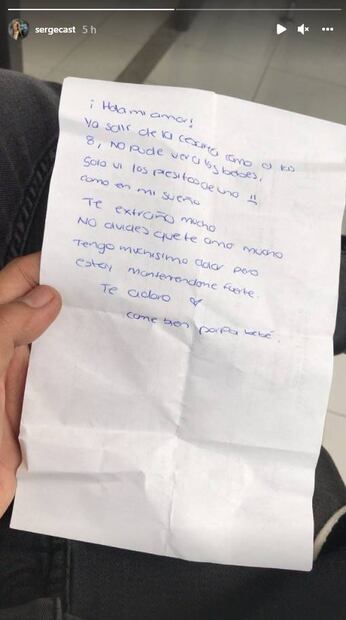 sergecast 5 h
¡Hola mi amor!
Ya salí de la cesárea como a las
8, no pude ver a los bebes,
Solo vi los piesitos de uno !!
como en mi sueño
Te extraño mucho
NO olvides que te amo mucho
Tengo muchisimo dolor pero
estoy manteniendome fuerte.
Te adoro
come bien papá bebé.